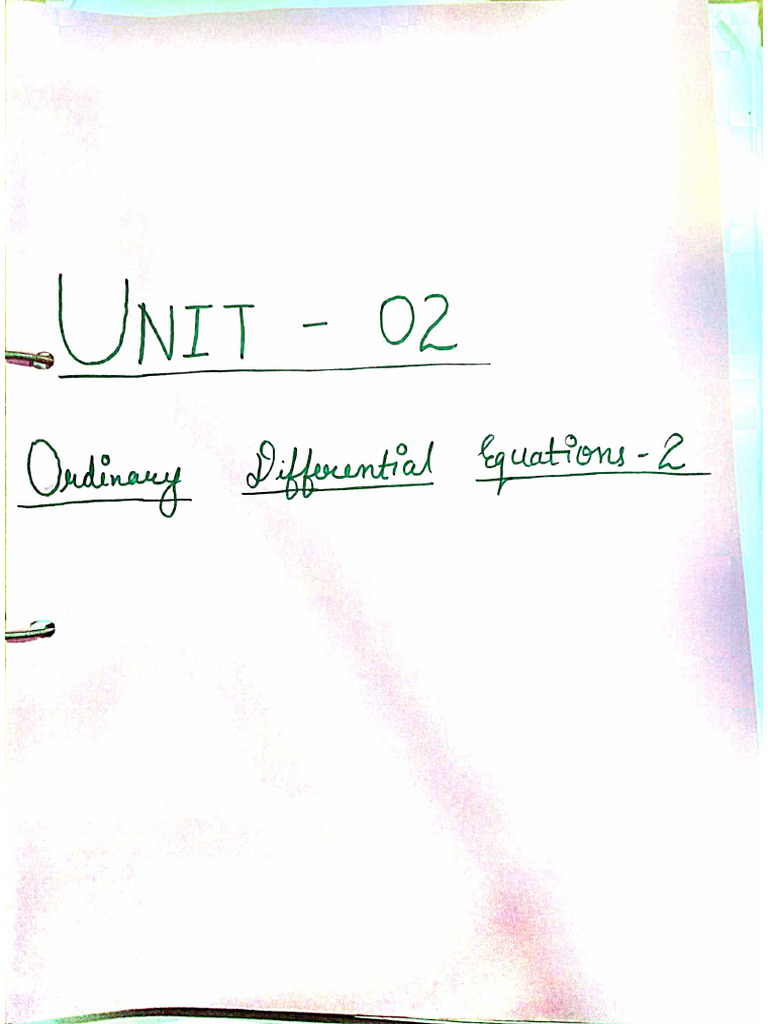 UNIT - 02
Ordinary Differential Equations - 2